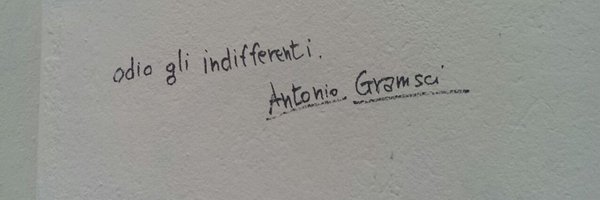 odio gli indifferenti.
Antonio Gramsci